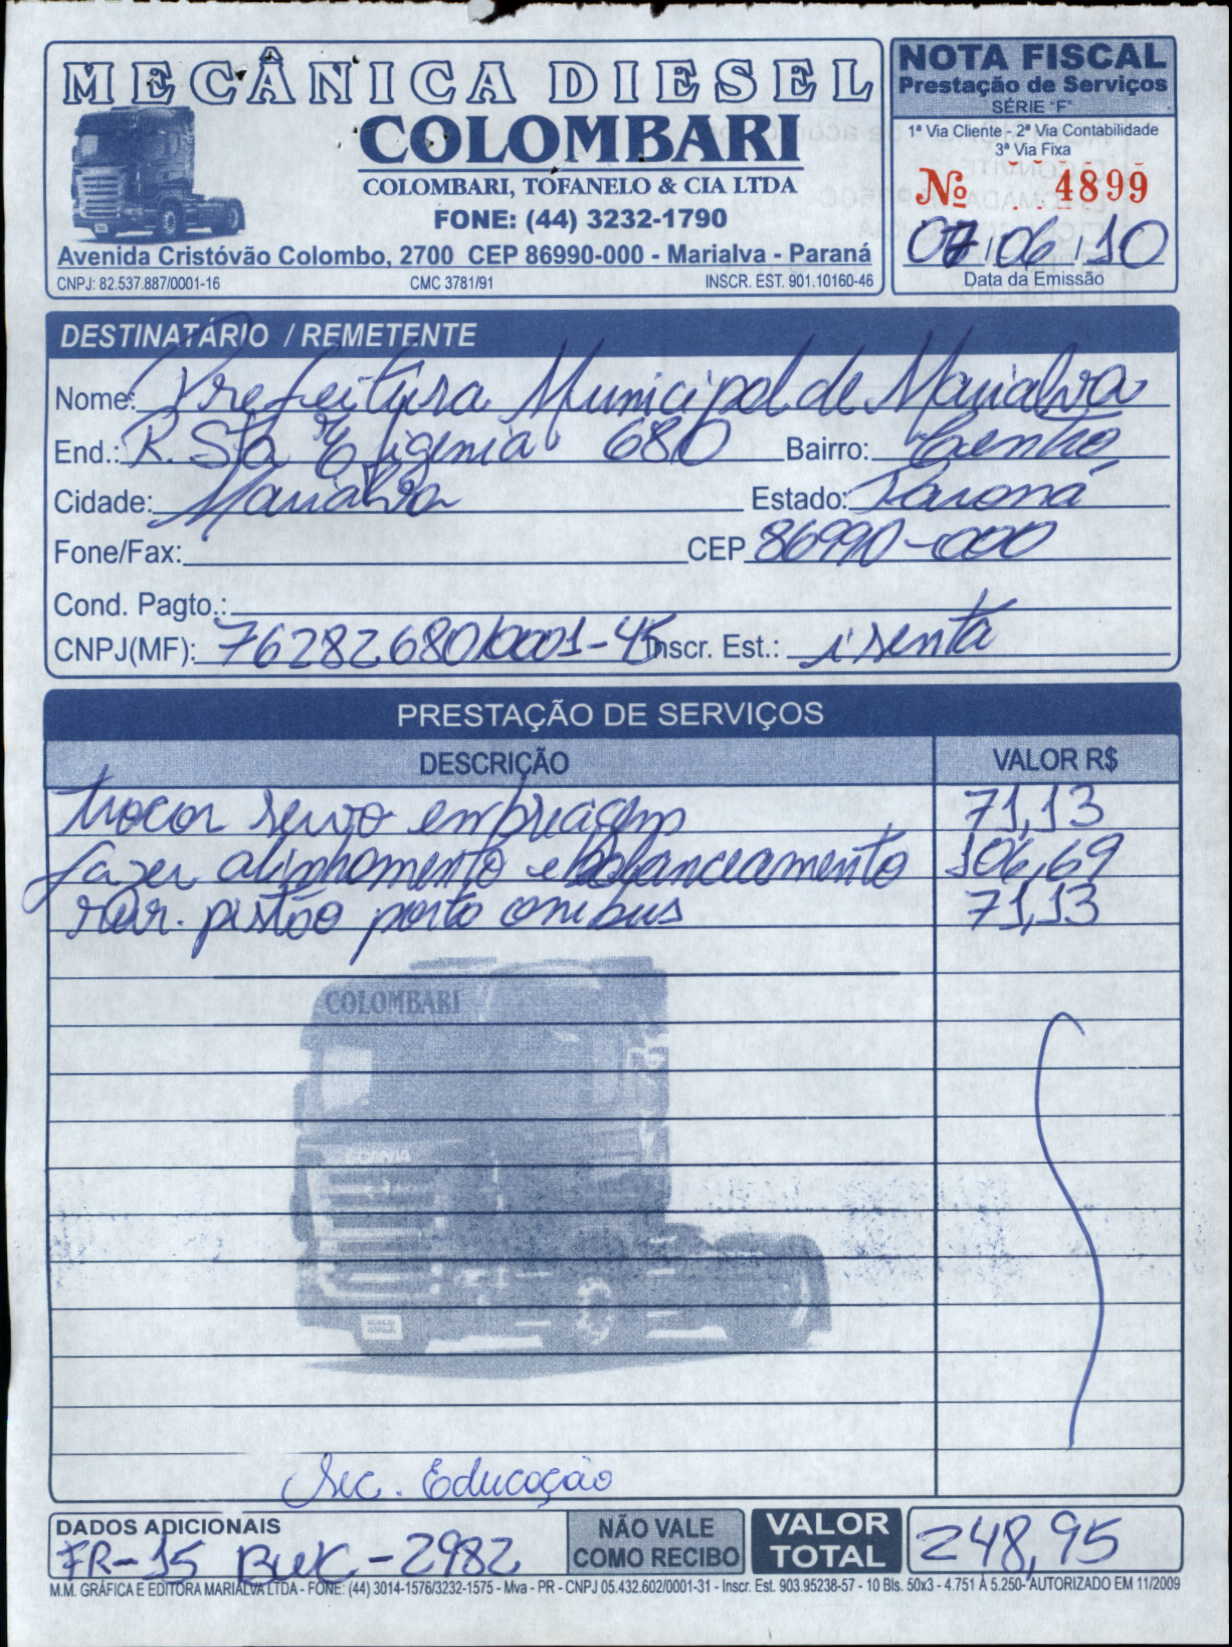 MECÂNICA DIESEL
COLOMBARI
COLOMBARI, TOFANELO & CIA LTDA
FONE: (44) 3232-1790
Avenida Cristóvão Colombo, 2700 CEP 86990-000 - Marialva - Paraná
CNPJ: 82.537.887/0001-16 CMC 3781/91 INSCR. EST. 901.10160-46
NOTA FISCAL
Prestação de Serviços
SÉRIE "F"
1ª Via Cliente - 2ª Via Contabilidade
3ª Via Fixa
Nº 4899
07/06/10
Data da Emissão
DESTINATÁRIO / REMETENTE
Nome: Prefeitura Municipal de Marialva
End.: R. Sta Efigenia 680 Bairro: Centro
Cidade: Marialva Estado: Paraná
Fone/Fax: CEP 86990-000
Cond. Pagto.:
CNPJ(MF): 76282680/0001-45 Inscr. Est.: isenta
PRESTAÇÃO DE SERVIÇOS
DESCRIÇÃO VALOR R$
trocar servo embreagem 71,13
fazer alinhamento e balanceamento 106,69
rear. pistão porta onibus 71,13
COLOMBARI
SCANIA
Sec. Educação
DADOS ADICIONAIS
FR-15 BWC-2982
NÃO VALE
COMO RECIBO
VALOR
TOTAL
248,95
M.M. GRÁFICA E EDITORA MARIALVA LTDA - FONE: (44) 3014-1576/3232-1575 - Mva - PR - CNPJ 05.432.602/0001-31 - Inscr. Est. 903.95238-57 - 10 Bls. 50x3 - 4.751 À 5.250- AUTORIZADO EM 11/2009